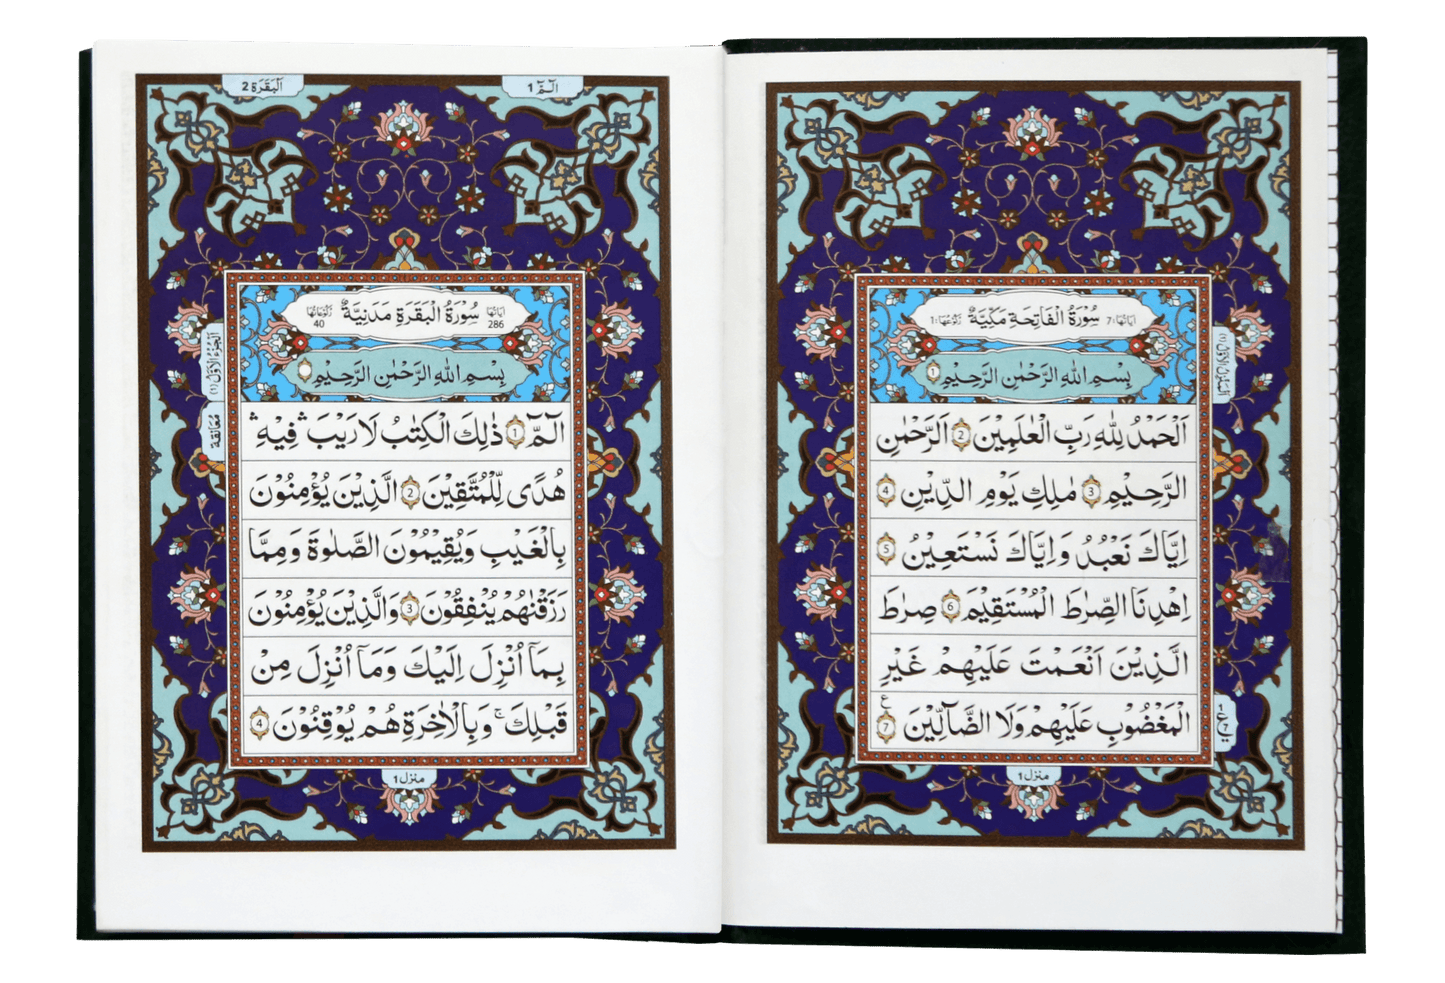 سُوْرَةُ الْفَاتِحَةِ مَكِّيَّةٌ
اٰيَاتُهَا: 7
رُكُوْعُهَا: 1
بِسْمِ اللّٰهِ الرَّحْمٰنِ الرَّحِيْمِ 1
اَلْحَمْدُ لِلّٰهِ رَبِّ الْعٰلَمِيْنَ 2 اَلرَّحْمٰنِ
الرَّحِيْمِ 3 مٰلِكِ يَوْمِ الدِّيْنِ 4
اِيَّاكَ نَعْبُدُ وَاِيَّاكَ نَسْتَعِيْنُ 5
اِهْدِنَا الصِّرَاطَ الْمُسْتَقِيْمَ 6 صِرَاطَ
الَّذِيْنَ اَنْعَمْتَ عَلَيْهِمْ غَيْرِ
الْمَغْضُوْبِ عَلَيْهِمْ وَلَا الضَّآلِّيْنَ 7
ع
منزل 1
الٓمّٓ 1
اَلْبَقَرَة 2
اٰيَاتُهَا 286
سُوْرَةُ الْبَقَرَةِ مَدَنِيَّةٌ
رُكُوْعَاتُهَا 40
بِسْمِ اللّٰهِ الرَّحْمٰنِ الرَّحِيْمِ
الٓمّٓ 1 ذٰلِكَ الْكِتٰبُ لَا رَيْبَ ۛ فِيْهِ ۛ
هُدًى لِّلْمُتَّقِيْنَ 2 الَّذِيْنَ يُؤْمِنُوْنَ
بِالْغَيْبِ وَيُقِيْمُوْنَ الصَّلٰوةَ وَمِمَّا
رَزَقْنٰهُمْ يُنْفِقُوْنَ 3 وَالَّذِيْنَ يُؤْمِنُوْنَ
بِمَآ اُنْزِلَ اِلَيْكَ وَمَآ اُنْزِلَ مِنْ
قَبْلِكَ ۚ وَبِالْاٰخِرَةِ هُمْ يُوْقِنُوْنَ 4
اَلْجُزْءُ الْاَوَّلُ (1)
مُعَانقة
منزل 1